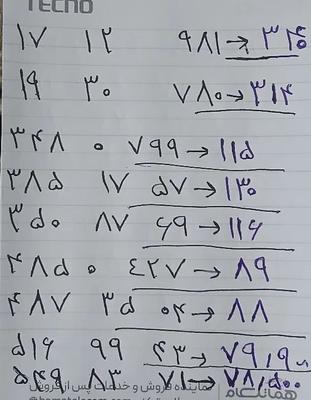 TECNO
۱۷ ۱۲ ۹۸۱ → ۳۴۵
۱۹ ۳۰ ۷۸۰ → ۳۱۴
۳۴۸ ۰ ۷۹۹ → ۱۱۵
۳۸۵ ۱۷ ۵۷ → ۱۳۰
۳۵۰ ۸۷ ۶۹ → ۱۱۶
۴۸۵ ۰ ۴۲۷ → ۸۹
۴۸۷ ۳۵ ۰۴ → ۸۸
۵۱۶ ۹۹ ۴۳ → ۷۹٫۹
۵۴۹ ۸۳ ۷۱ → ۷۸٫۵۰۰
نماینده فروش و خدمات پس از فروش